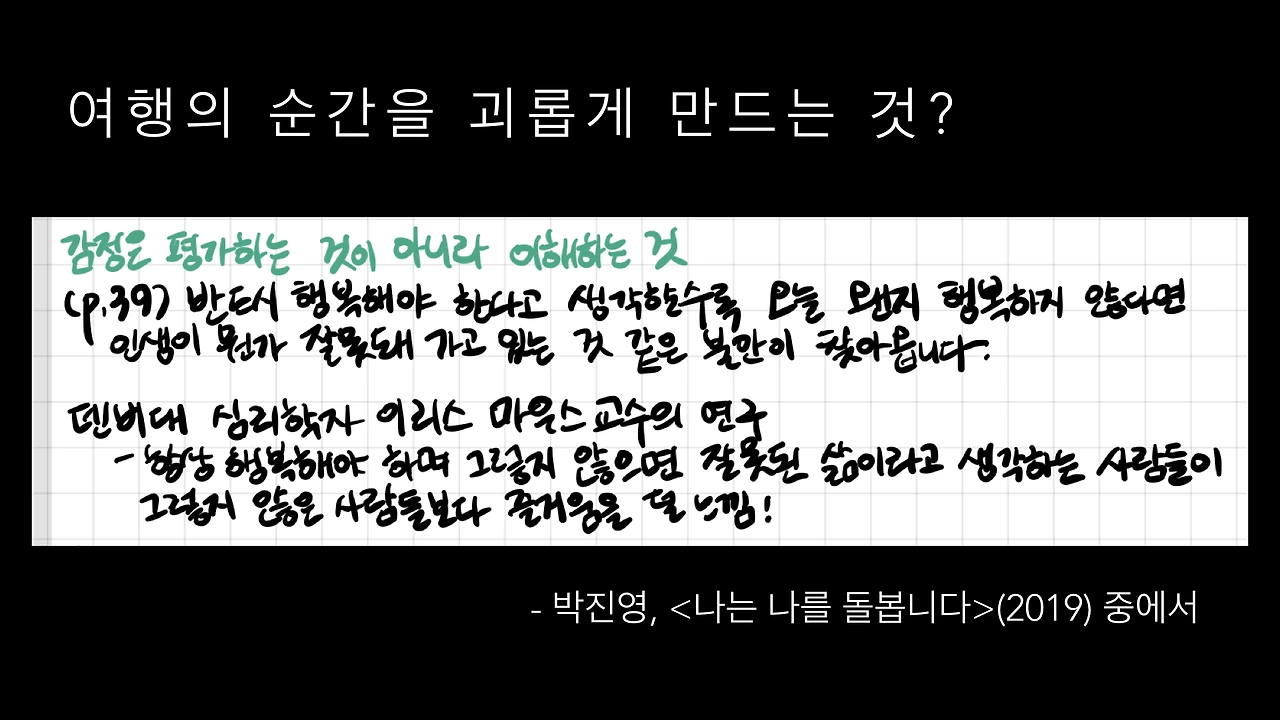 여행의 순간을 괴롭게 만드는 것?
감정은 평가하는 것이 아니라 이해하는 것
(p.39) 반드시 행복해야 한다고 생각할수록 오늘 왠지 행복하지 않다면
인생이 뭔가 잘못돼 가고 있는 것 같은 불만이 찾아옵니다.
덴버대 심리학자 이리스 마우스 교수의 연구
- 항상 행복해야 하며 그렇지 않으면 잘못된 삶이라고 생각하는 사람들이
그렇지 않은 사람들보다 즐거움을 덜 느낌!
- 박진영, <나는 나를 돌봅니다>(2019) 중에서